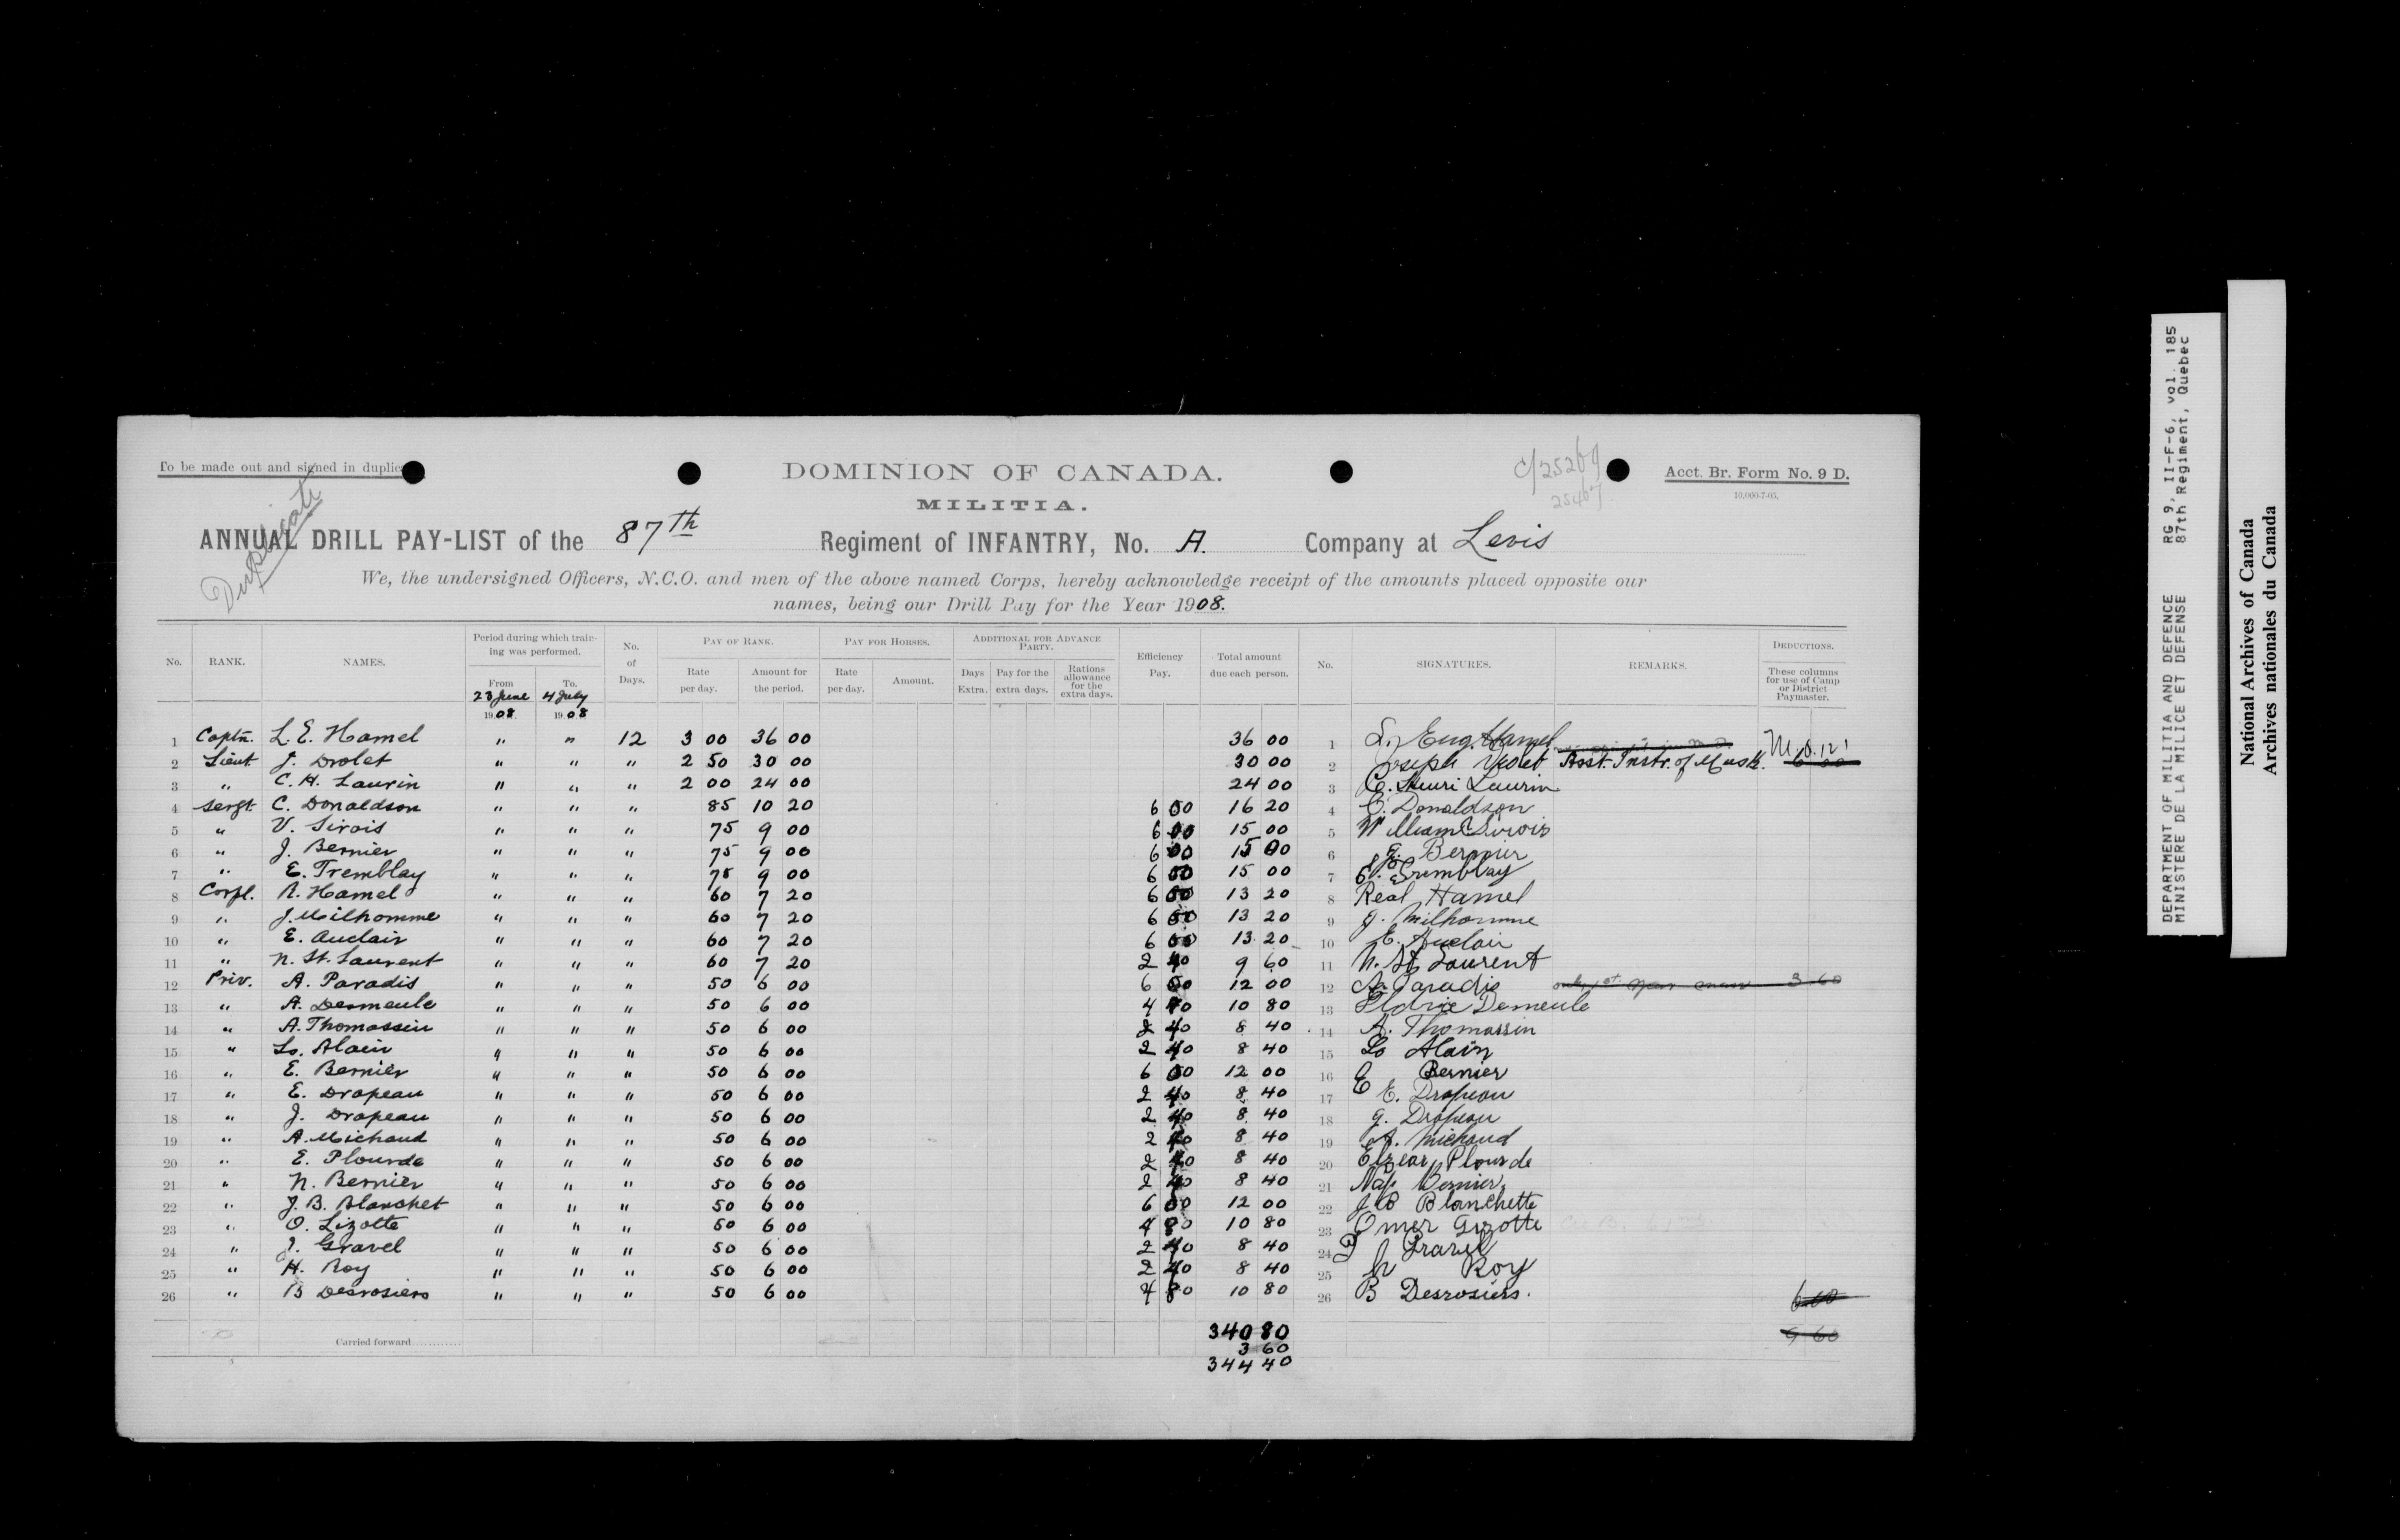 To be made out and signed in duplic
Duplicate
DOMINION OF CANADA.
MILITIA.
C/25269
25467
Acct. Br. Form No. 9 D.
10,000-7-05.
ANNUAL DRILL PAY-LIST of the 87th Regiment of INFANTRY, No. A. Company at Levis
We, the undersigned Officers, N.C.O. and men of the above named Corps, hereby acknowledge receipt of the amounts placed opposite our
names, being our Drill Pay for the Year 1908.
No. RANK. NAMES. Period during which training was performed. From 23 June 1908. To. 4 July 1908 No. of Days. PAY OF RANK. Rate per day. Amount for the period. PAY FOR HORSES. Rate per day. Amount. ADDITIONAL FOR ADVANCE PARTY. Days Extra. Pay for the extra days. Rations allowance for the extra days. Efficiency Pay. Total amount due each person. No. SIGNATURES. REMARKS. DEDUCTIONS. These columns for use of Camp or District Paymaster.
1 Captn. L. E. Hamel " " 12 3 00 36 00 36 00 1 L. Eug. Hamel
2 Lieut J. Drolet " " " 2 50 30 00 30 00 2 Joseph Drolet Asst. Instr. of Musk. M.D. 121 6 00
3 " C. H. Laurin " " " 2 00 24 00 24 00 3 C. Henri Laurin
4 Sergt. C. Donaldson " " " 85 10 20 6 00 16 20 4 C. Donaldson
5 " V. Sirois " " " 75 9 00 6 00 15 00 5 William Sirois
6 " J. Bernier " " " 75 9 00 6 00 15 00 6 J. Bernier
7 " E. Tremblay " " " 75 9 00 6 00 15 00 7 E. Tremblay
8 Corpl. R. Hamel " " " 60 7 20 6 00 13 20 8 Real Hamel
9 " J. Milhomme " " " 60 7 20 6 00 13 20 9 J. Milhomme
10 " E. Auclair " " " 60 7 20 6 00 13 20 10 E. Auclair
11 " N. St. Laurent " " " 60 7 20 2 40 9 60 11 N. St Laurent
12 Priv. A. Paradis " " " 50 6 00 6 00 12 00 12 A. Paradis only 1st year man 3 60
13 " A. Desmeule " " " 50 6 00 4 80 10 80 13 Eldric Demeule
14 " A. Thomassin " " " 50 6 00 2 40 8 40 14 A. Thomassin
15 " Ls. Alain " " " 50 6 00 2 40 8 40 15 Ls Alain
16 " E. Bernier " " " 50 6 00 6 00 12 00 16 E Bernier
17 " E. Drapeau " " " 50 6 00 2 40 8 40 17 E. Drapeau
18 " J. Drapeau " " " 50 6 00 2 40 8 40 18 J. Drapeau
19 " A. Michaud " " " 50 6 00 2 40 8 40 19 A. Michaud
20 " E. Plourde " " " 50 6 00 2 40 8 40 20 Elzear Plourde
21 " N. Bernier " " " 50 6 00 2 40 8 40 21 Nap Bernier
22 " J. B. Blanchet " " " 50 6 00 6 00 12 00 22 J B Blanchette
23 " O. Lizotte " " " 50 6 00 4 80 10 80 23 Omer Lizotte
24 " J. Gravel " " " 50 6 00 2 40 8 40 24 J Gravel
25 " H. Roy " " " 50 6 00 2 40 8 40 25 h Roy
26 " B Desrosiers " " " 50 6 00 4 80 10 80 26 B Desrosiers. 6 00
Carried forward............ 340 80 9 60
3 60
344 40
DEPARTMENT OF MILITIA AND DEFENCE RG 9, II-F-6, vol. 185
MINISTERE DE LA MILICE ET DEFENSE 87th Regiment, Quebec
National Archives of Canada
Archives nationales du Canada